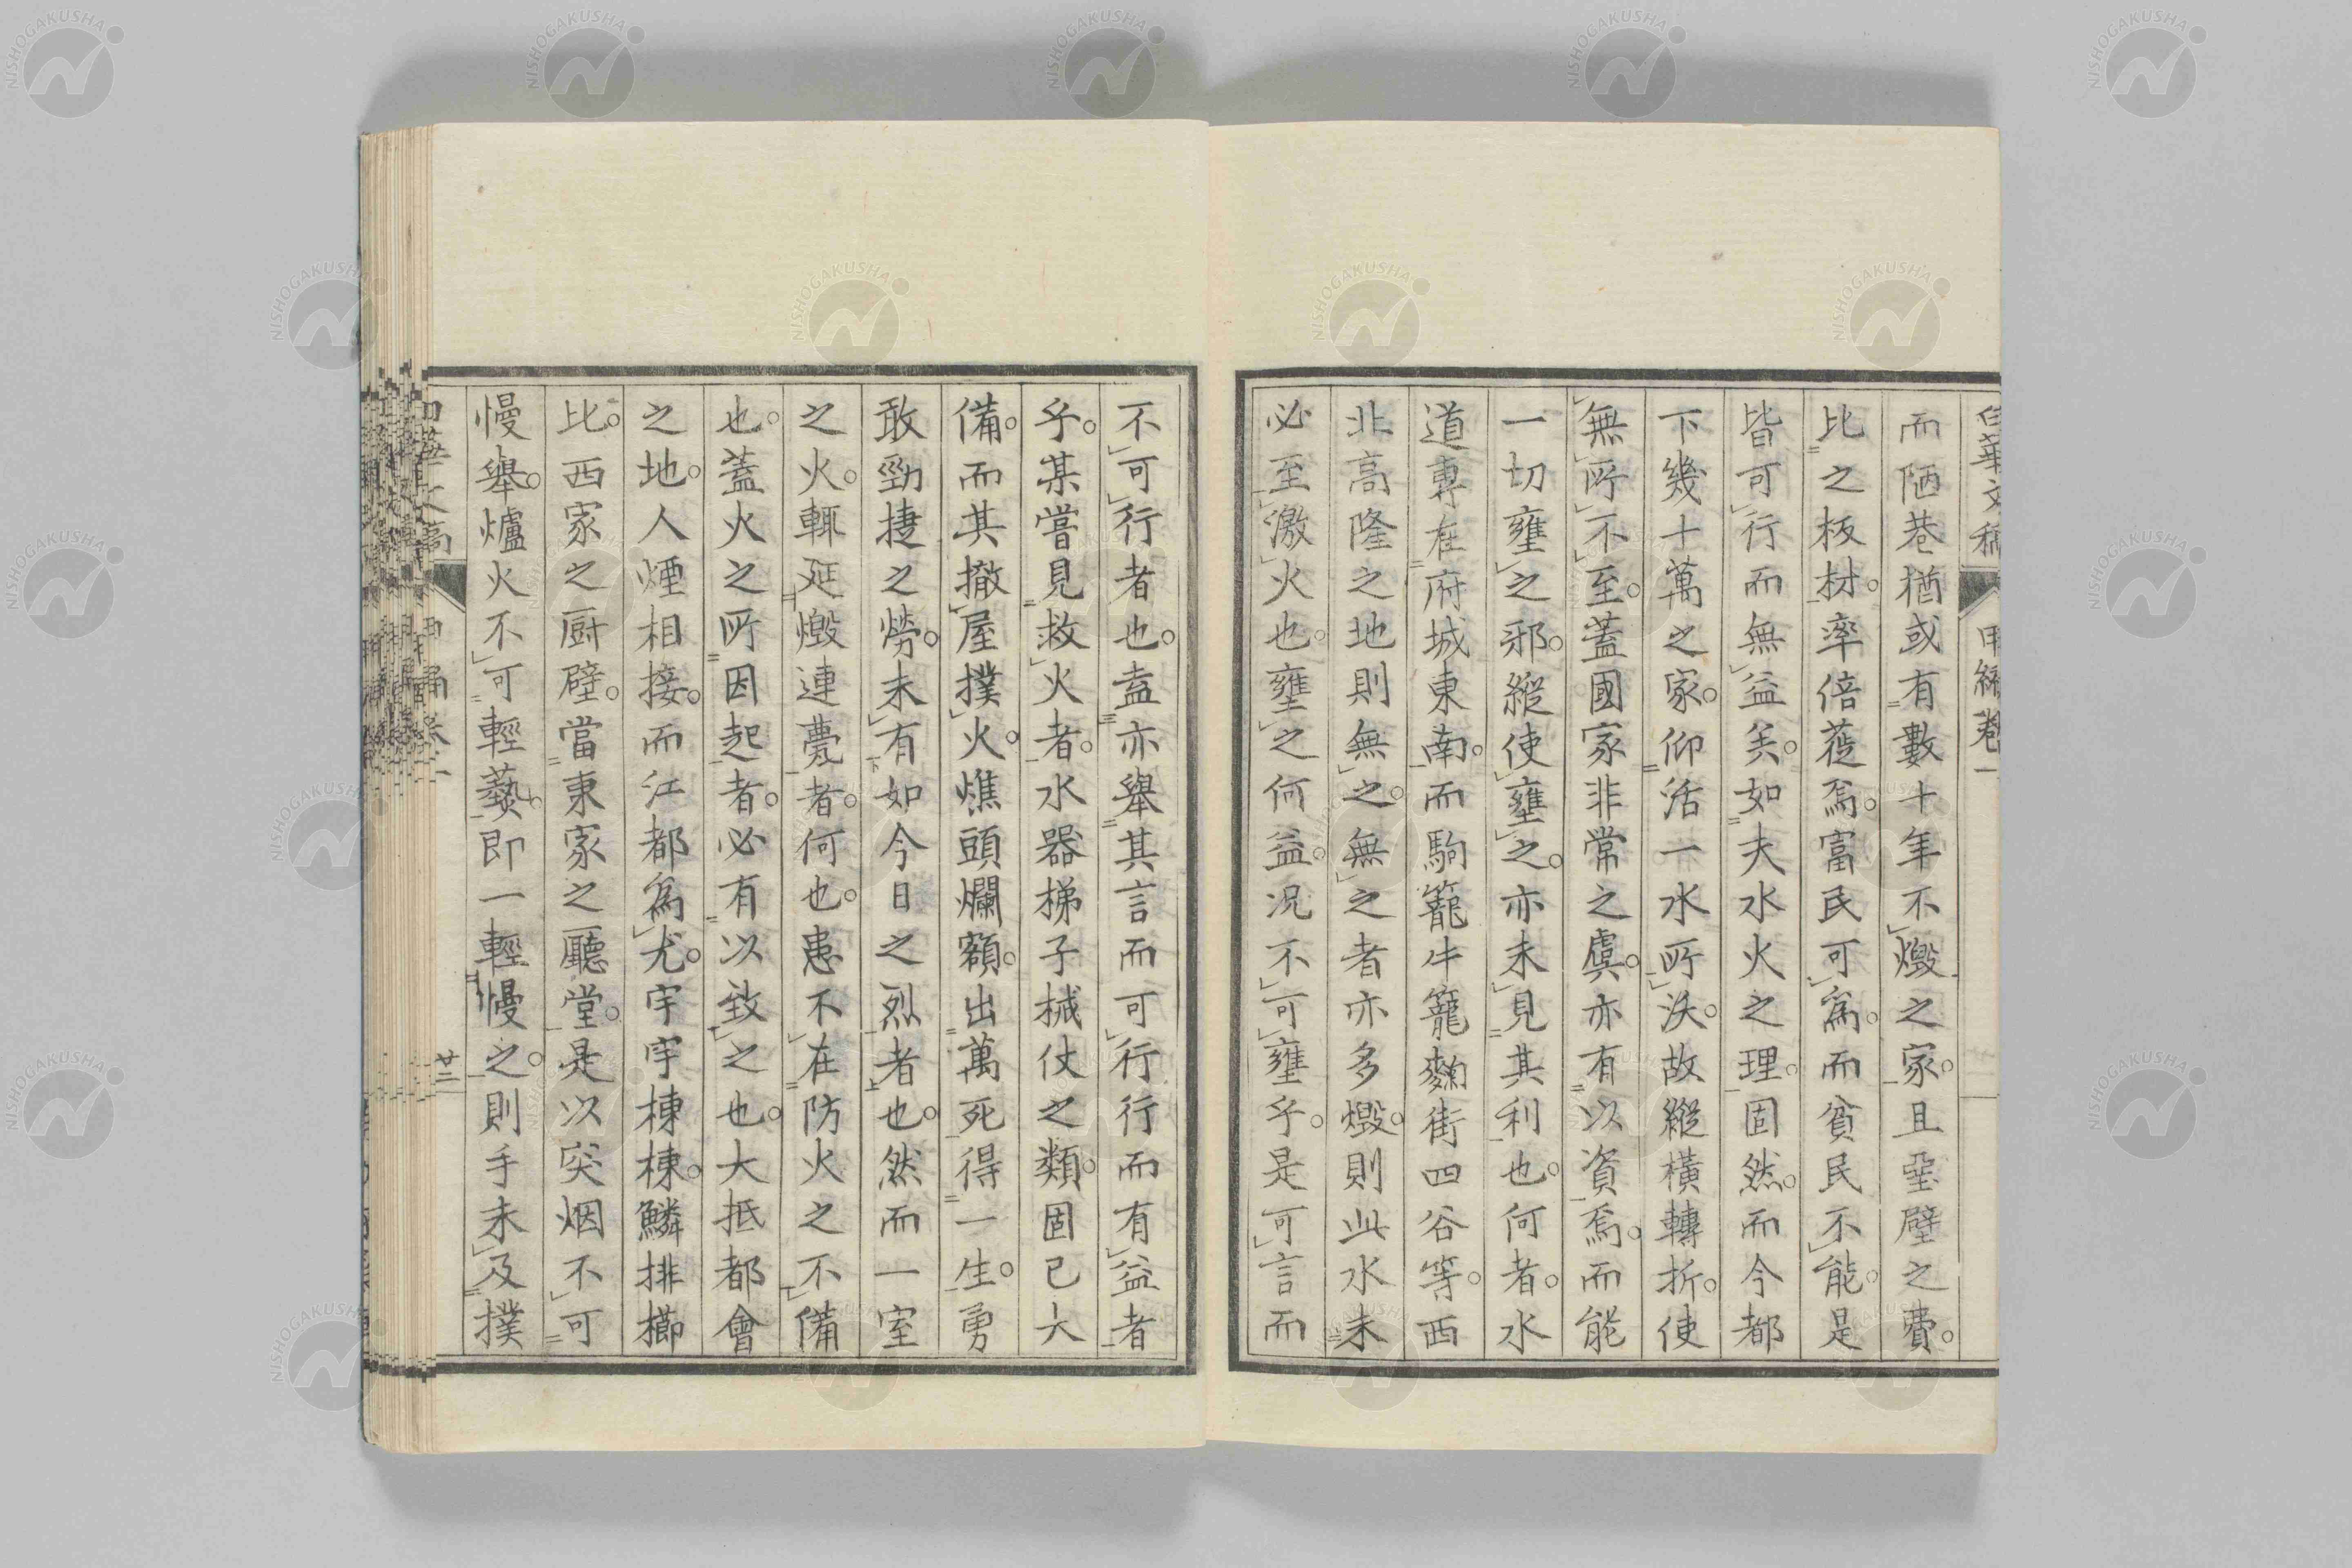 白華文稿 甲編卷一
而陋巷猶或有數十年不燬之家。且堊壁之費。
比之板材。率倍蓰焉。富民可爲。而貧民不能。是
皆可行而無益矣。如夫水火之理。固然。而今都
下幾十萬之家。仰活一水所沃。故縱橫轉折。使
無所不至。蓋國家非常之虞。亦有以資焉。而能
一切壅之邪。縱使壅之。亦未見其利也。何者。水
道專在府城東南。而駒籠牛籠麴街四谷等。西
北高隆之地則無之。無之者亦多燬。則此水未
必至激火也。壅之何益。況不可壅乎。是可言而
不可行者也。盍亦舉其言而可行行而有益者
乎。某嘗見救火者。水器梯子械仗之類。固已大
備。而其撤屋撲火。燋頭爛額。出萬死得一生。勇
敢勁捷之勞。未有如今日之烈者也。然而一室
之火。輒延燬連甍者。何也。患不在防火之不備
也。蓋火之所因起者。必有以致之也。大抵都會
之地。人煙相接。而江都爲尤。宇宇棟棟。鱗排櫛
比。西家之厨壁。當東家之廳堂。是以突烟不可
慢舉。爐火不可輕爇。即一輕慢之。則手未及撲
廿二